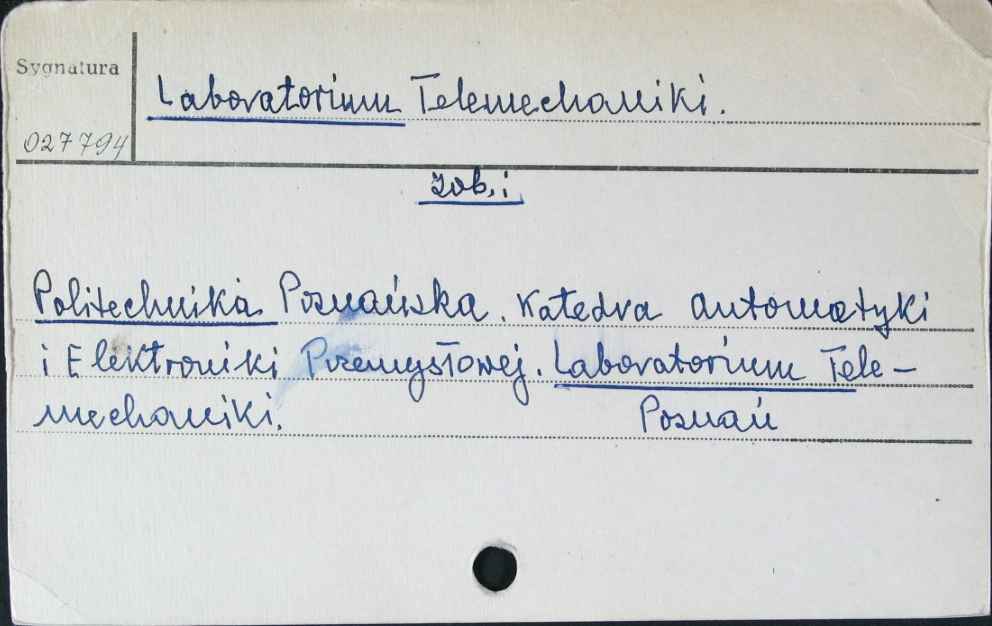 Sygnatura
Laboratorium Telemechaniki.
027794
zob.:
Politechnika Poznańska. Katedra Automatyki
i Elektroniki Przemysłowej. Laboratorium Tele-
mechaniki. Poznań